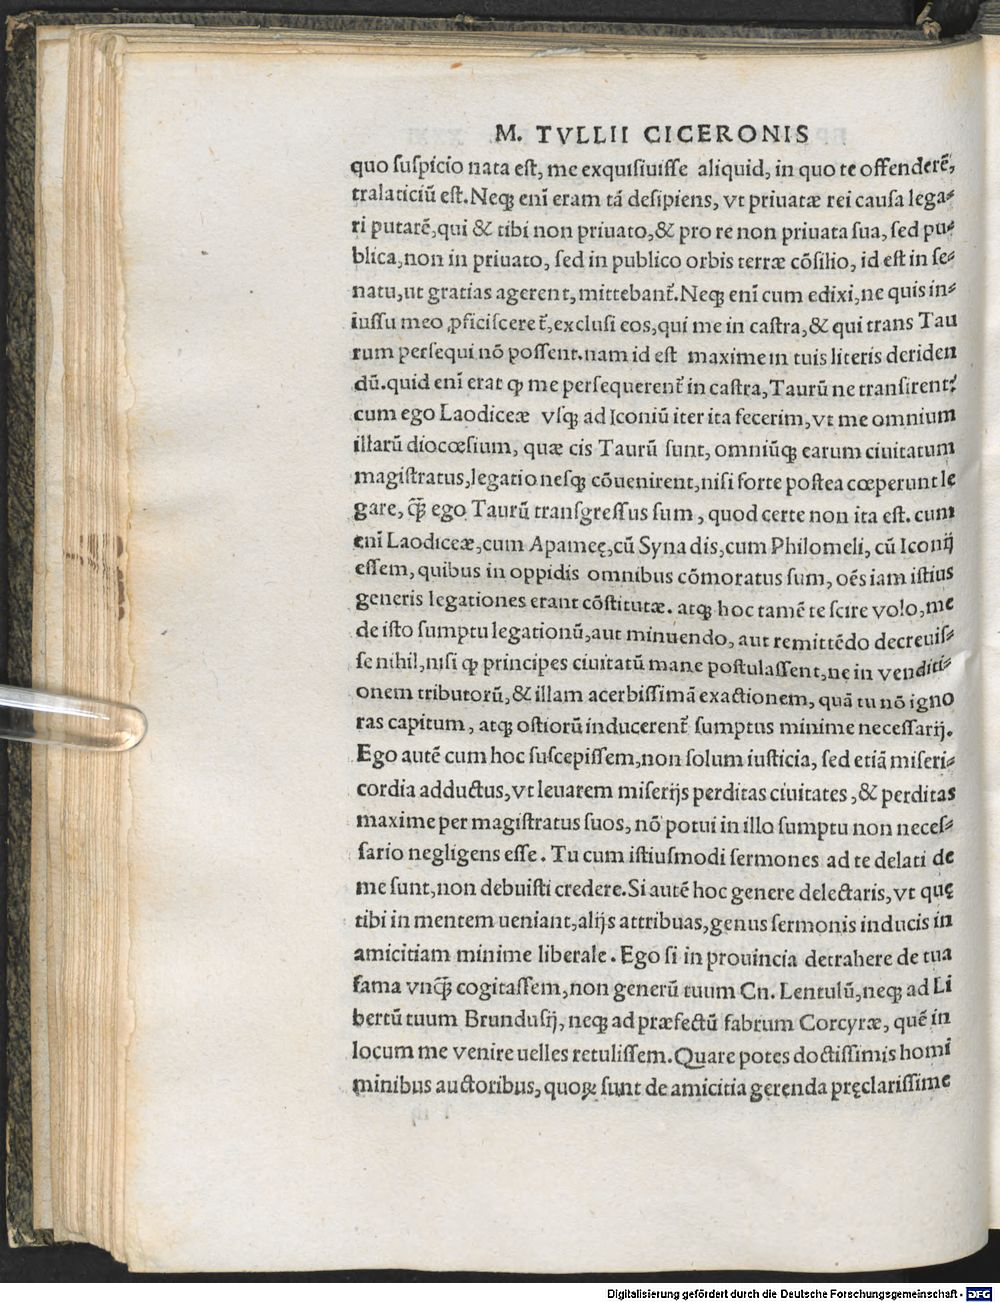 M. TVLLII CICERONIS
quo suspicio nata est, me exquisiuisse aliquid, in quo te offenderē,
tralaticiū est. Neq; enī eram tā desipiens, vt priuatæ rei causa lega⸗
ri putarē, qui & tibi non priuato, & pro re non priuata sua, sed pu⸗
blica, non in priuato, sed in publico orbis terræ cōsilio, id est in se⸗
natu, ut gratias agerent, mittebant̃. Neq; enī cum edixi, ne quis in⸗
iussu meo ꝓficisceret̃, exclusi eos, qui me in castra, & qui trans Tau
rum persequi nō possent. nam id est maxime in tuis literis deriden
dū. quid enī erat ꝙ me persequerent̃ in castra, Taurū ne transirent?
cum ego Laodiceæ vsq; ad Iconiū iter ita fecerim, vt me omnium
illarū diocœsium, quæ cis Taurū sunt, omniūq; earum ciuitatum
magistratus, legationesq; cōuenirent, nisi forte postea cœperunt le
gare, q̄ꝫ ego Taurū transgressus sum, quod certe non ita est. cum
enī Laodiceæ, cum Apameę, cū Synadis, cum Philomeli, cū Iconij
essem, quibus in oppidis omnibus cōmoratus sum, oēs iam istius
generis legationes erant cōstitutæ. atq; hoc tamē te scire volo, me
de isto sumptu legationū, aut minuendo, aut remittēdo decreuis⸗
se nihil, nisi ꝙ principes ciuitatū mane postulassent, ne in venditi⸗
onem tributorū, & illam acerbissimā exactionem, quā tu nō igno
ras capitum, atq; ostiorū inducerent̃ sumptus minime necessarij.
Ego autē cum hoc suscepissem, non solum iusticia, sed etiā miseri⸗
cordia adductus, vt leuarem miserijs perditas ciuitates, & perditas
maxime per magistratus suos, nō potui in illo sumptu non neces⸗
sario negligens esse. Tu cum istiusmodi sermones ad te delati de
me sunt, non debuisti credere. Si autē hoc genere delectaris, vt quę
tibi in mentem ueniant, alijs attribuas, genus sermonis inducis in
amicitiam minime liberale. Ego si in prouincia detrahere de tua
fama vnq̄ꝫ cogitassem, non generū tuum Cn. Lentulū, neq; ad Li
bertū tuum Brundusij, neq; ad præfectū fabrum Corcyræ, quē in
locum me venire uelles retulissem. Quare potes doctissimis homi
minibus auctoribus, quoꝝ sunt de amicitia gerenda pręclarissime
Digitalisierung gefördert durch die Deutsche Forschungsgemeinschaft - DFG